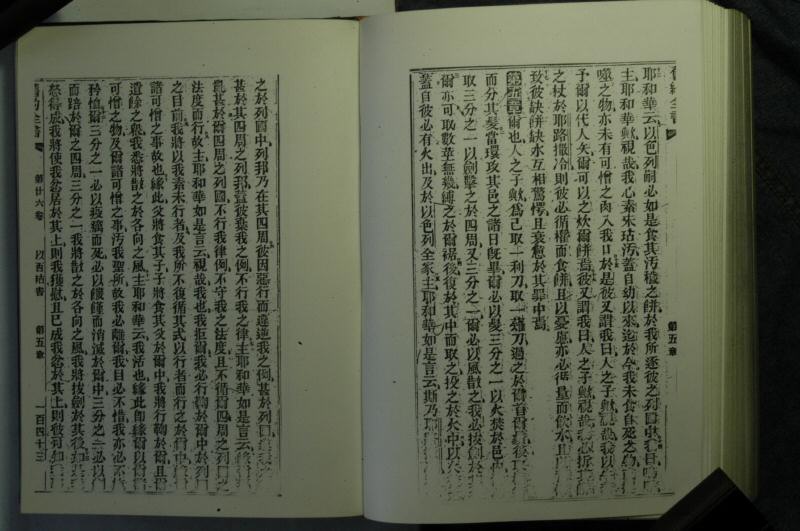 舊約全書
耶和華云以色列嗣必如是食其汚穢之餅於我所逐彼之列
主耶和華歟視哉我心素未玷汚蓋自幼以來迄於今我未食自死之
噬之物亦未有可憎之肉入我口於是彼又謂我曰人之子歟視哉我以
予爾以代人矢爾可以之炊爾餅焉彼又謂我曰人之子歟視哉我必折
之杖於耶路撒冷則彼必循權而食餅且以憂慮亦必循量而飲水且
致彼缺餅缺水互相驚愕且衰憊於其罪中焉
第五章爾也人之子歟爲己取一利刀取一薙刀過之於爾首爾鬚後
而分其髮當環攻其邑之諸日旣畢爾必以髮三分之一以火焚於邑
取三分之一以劍擊之於四周又三分之一爾必以風散之我必拔劍於
爾亦可取數莖無幾縛之於爾裾後復於其中而取之投之於火中以
蓋自彼必有火出及於以色列全家主耶和華如是言云斯乃耶
第五章
之於列國中列邦乃在其四周彼因惡行而違逆我之例甚於列
甚於其四周之列邦蓋彼棄我之例不行我之律主耶和華如是言云
亂甚於爾四周之列國不行我律例不守我之法度且不循爾四周之列
法度而行故主耶和華如是言云視哉我也我拒爾我必行鞫於爾中於列
之目前我將以我素未行者及我所不復循其式以行者而行之於爾中
諸可憎之事故也緣此父將食其子子將食其父於爾中我將行鞫於爾且
遺餘之衆我悉將散之於各向之風主耶和華云我活也緣此卽緣爾以
可憎之物及爾諸可憎之事汚我聖所故我必離爾我目必不惜我亦必不
矜恤爾三分之一必以疫癘而死必以饑饉而消滅於爾中三分之一必以
而踣於爾之四周三分之一我將散之於各向之風我將拔劍於其後如
怒得成我將使我忿居於其上則我獲慰且已成我忿於其上則彼可知
舊約全書
第廿六卷
以西結書
第五章
一百四十三